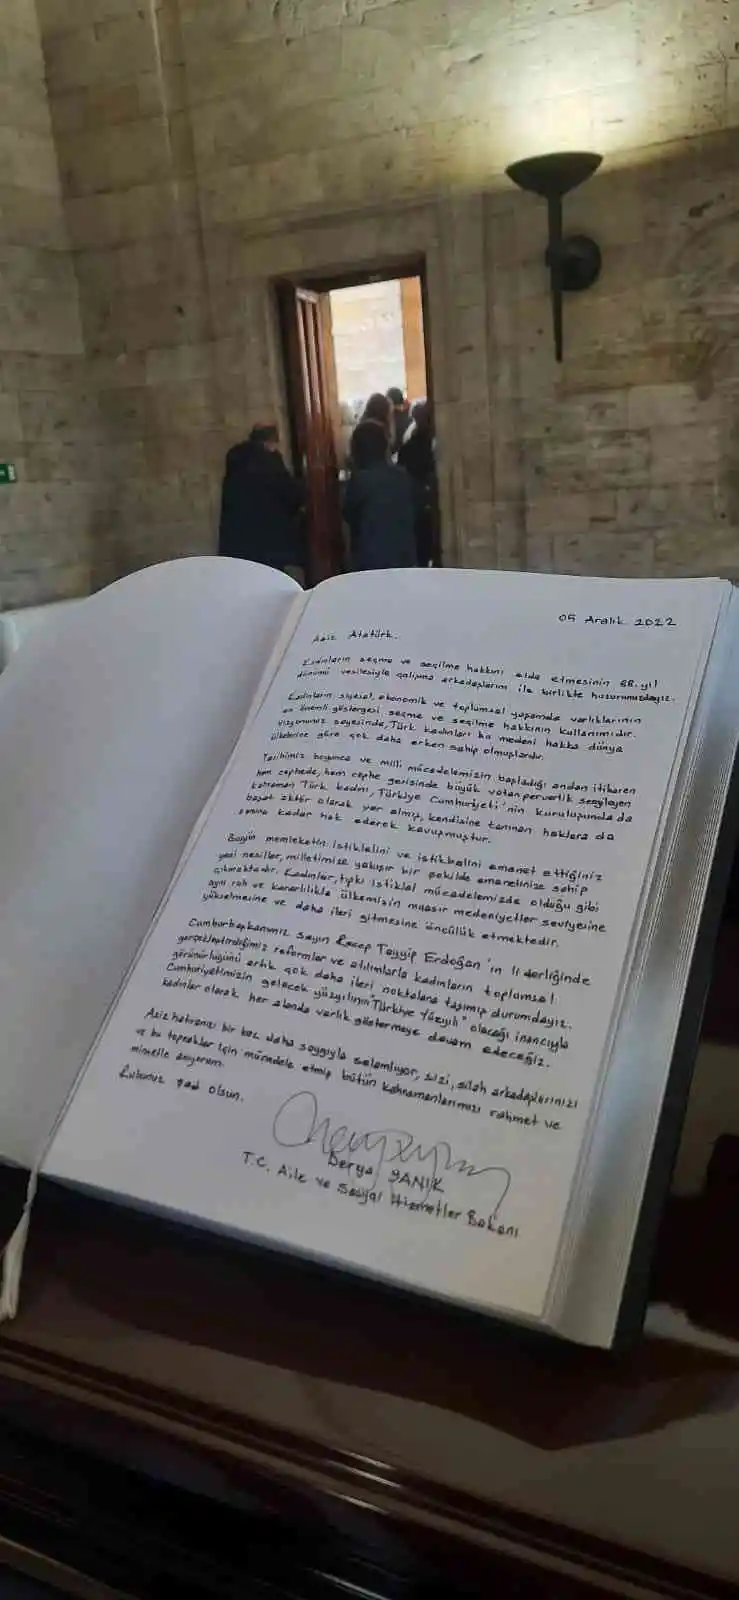 05 Aralık 2022
Aziz Atatürk.
Kadınların seçme ve seçilme hakkını elde etmesinin 88. yıl
dönümü vesilesiyle çalışma arkadaşlarım ile birlikte huzurunuzdayız.
Kadınların siyasal, ekonomik ve toplumsal yaşamda varlıklarının
en önemli göstergesi seçme ve seçilme hakkının kullanımıdır.
Vizyonunuz sayesinde, Türk kadınları bu medeni hakka dünya
ülkelerine göre çok daha erken sahip olmuşlardır.
Tarihimiz boyunca ve milli mücadelemizin başladığı andan itibaren
hem cephede, hem cephe gerisinde büyük vatanperverlik sergileyen
kahraman Türk kadını, Türkiye Cumhuriyeti'nin kuruluşunda da
başat aktör olarak yer almış, kendisine tanınan haklara da
sonuna kadar hak ederek kavuşmuştur.
Bugün memleketin istiklalini ve istikbalini emanet ettiğiniz
yeni nesiller, milletimize yakışır bir şekilde emanetinize sahip
çıkmaktadır. Kadınlar, tıpkı istiklal mücadelemizde olduğu gibi
aynı ruh ve kararlılıkla ülkemizin muasır medeniyetler seviyesine
yükselmesine ve daha ileri gitmesine öncülük etmektedir.
Cumhurbaşkanımız Sayın Recep Tayyip Erdoğan'ın liderliğinde
gerçekleştirdiğimiz reformlar ve atılımlarla kadınların toplumsal
görünürlüğünü artık çok daha ileri noktalara taşımış durumdayız.
Cumhuriyetimizin gelecek yüzyılının "Türkiye Yüzyılı" olacağı inancıyla
kadınlar olarak her alanda varlık göstermeye devam edeceğiz.
Aziz hatıranızı bir kez daha saygıyla selamlıyor, sizi, silah arkadaşlarınızı
ve bu topraklar için mücadele etmiş bütün kahramanlarımızı rahmet ve
minnetle anıyorum.
Ruhunuz şad olsun.
Derya YANIK
T.C. Aile ve Sosyal Hizmetler Bakanı